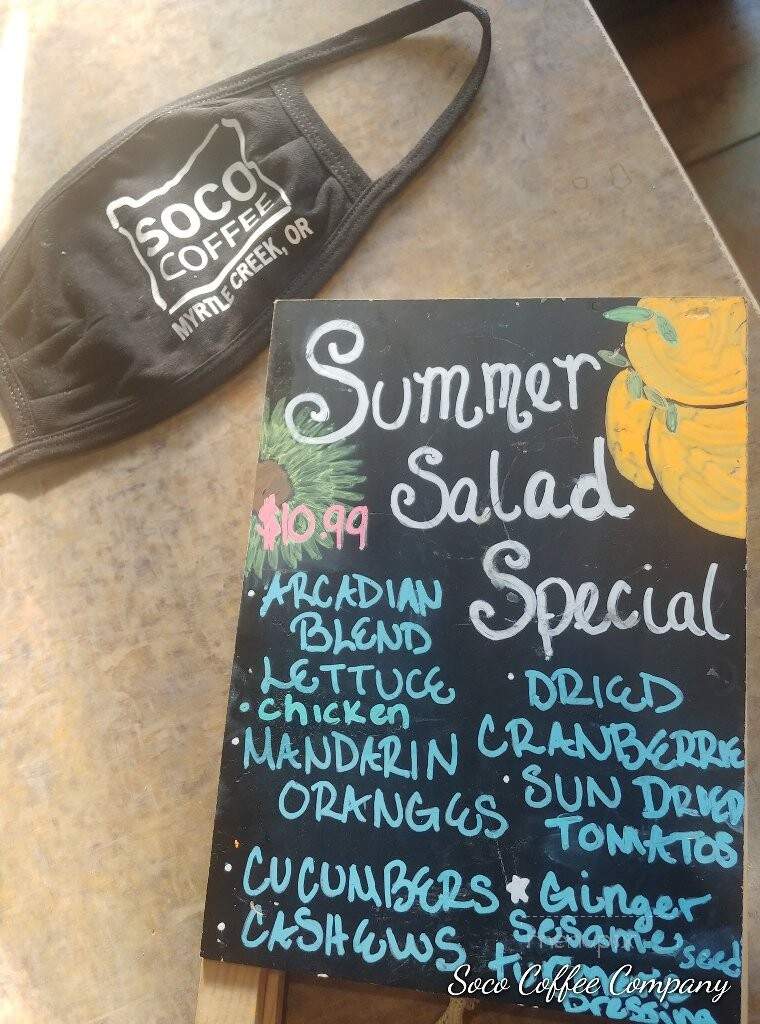 SOCO
COFFEE
MYRTLE CREEK, OR
Summer
Salad
Special
$10.99
• ARCADIAN
BLEND
• LETTUCE
• chicken
• MANDARIN
ORANGES
• CUCUMBERS
• CASHEWS
• DRIED
CRANBERRIE
• SUN DRIED
TOMATOS
* Ginger
sesame seed
Dressing
Soco Coffee Company